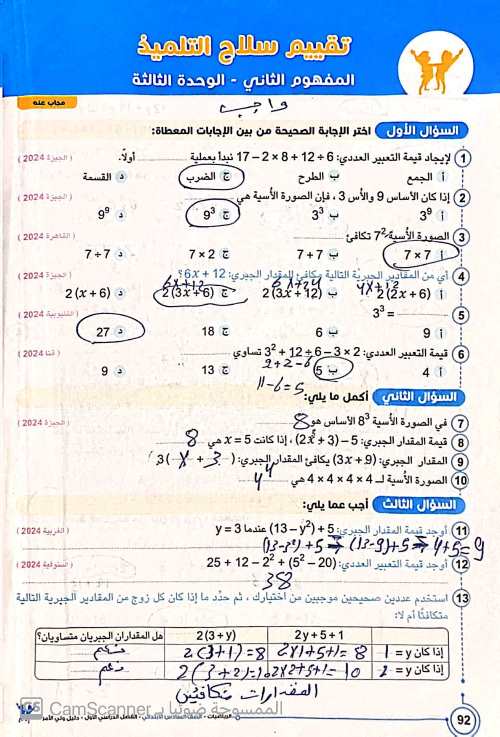 تقييم سلاح التلميذ
المفهوم الثاني - الوحدة الثالثة
مجاب عنه
واجب
السؤال الأول اختر الإجابة الصحيحة من بين الإجابات المعطاة:
1 لإيجاد قيمة التعبير العددي: 6 ÷ 12 + 8 × 2 − 17 نبدأ بعملية ............ أولًا. (الجيزة 2024)
أ الجمع ب الطرح ج الضرب د القسمة
2 إذا كان الأساس 9 والأس 3 ، فإن الصورة الأسية هي ............ (الجيزة 2024)
أ 3⁹ ب 3³ ج 9³ د 9⁹
3 الصورة الأسية 7² تكافئ ............ (القاهرة 2024)
أ 7 × 7 ب 7 + 7 ج 7 × 2 د 7 ÷ 7
4 أي من المقادير الجبرية التالية يكافئ المقدار الجبري: 6x + 12 ؟ (الجيزة 2024)
6x+12 6x+24 4x+12
أ 2(2x + 6) ب 2(3x + 12) ج 2(3x + 6) د 2(x + 6)
5 3³ = ............ (القليوبية 2024)
أ 9 ب 6 ج 18 د 27
6 قيمة التعبير العددي: 3² + 12 ÷ 6 − 3 × 2 تساوي ............ (قنا 2024)
9+2−6
أ 4 ب 5 ج 13 د 9
11−6=5
السؤال الثاني أكمل ما يلي:
7 في الصورة الأسية 8³ الأساس هو 8 (الجيزة 2024)
8 قيمة المقدار الجبري: 5 − (2x + 3) ، إذا كانت x = 5 هي 8
5
9 المقدار الجبري: (3x + 9) يكافئ المقدار الجبري: 3( x + 3 )
10 الصورة الأسية لـ 4 × 4 × 4 × 4 هي 4⁴
السؤال الثالث أجب عما يلي:
11 أوجد قيمة المقدار الجبري: (13 − y²) + 5 عندما y = 3 (الغربية 2024)
(13−3²)+5 ⇒ (13−9)+5 ⇒ 4+5=9
12 أوجد قيمة التعبير العددي: 25 + 12 − 2² + (5² − 20) (المنوفية 2024)
38
13 استخدم عددين صحيحين موجبين من اختيارك ، ثم حدد ما إذا كان كل زوج من المقادير الجبرية التالية
متكافئًا أم لا:
2y + 5 + 1 2(3 + y) هل المقداران الجبريان متساويان؟
إذا كان y = 1 2×1+5+1=8 2(3+1)=8 نعم
إذا كان y = 2 2×2+5+1=10 2(3+2)=10 نعم
المقدارات متكافئين
الممسوحة ضوئيا بـ CamScanner
الرياضيات - الصف السادس الابتدائي - الفصل الدراسي الأول - دليل ولي الأمر
92